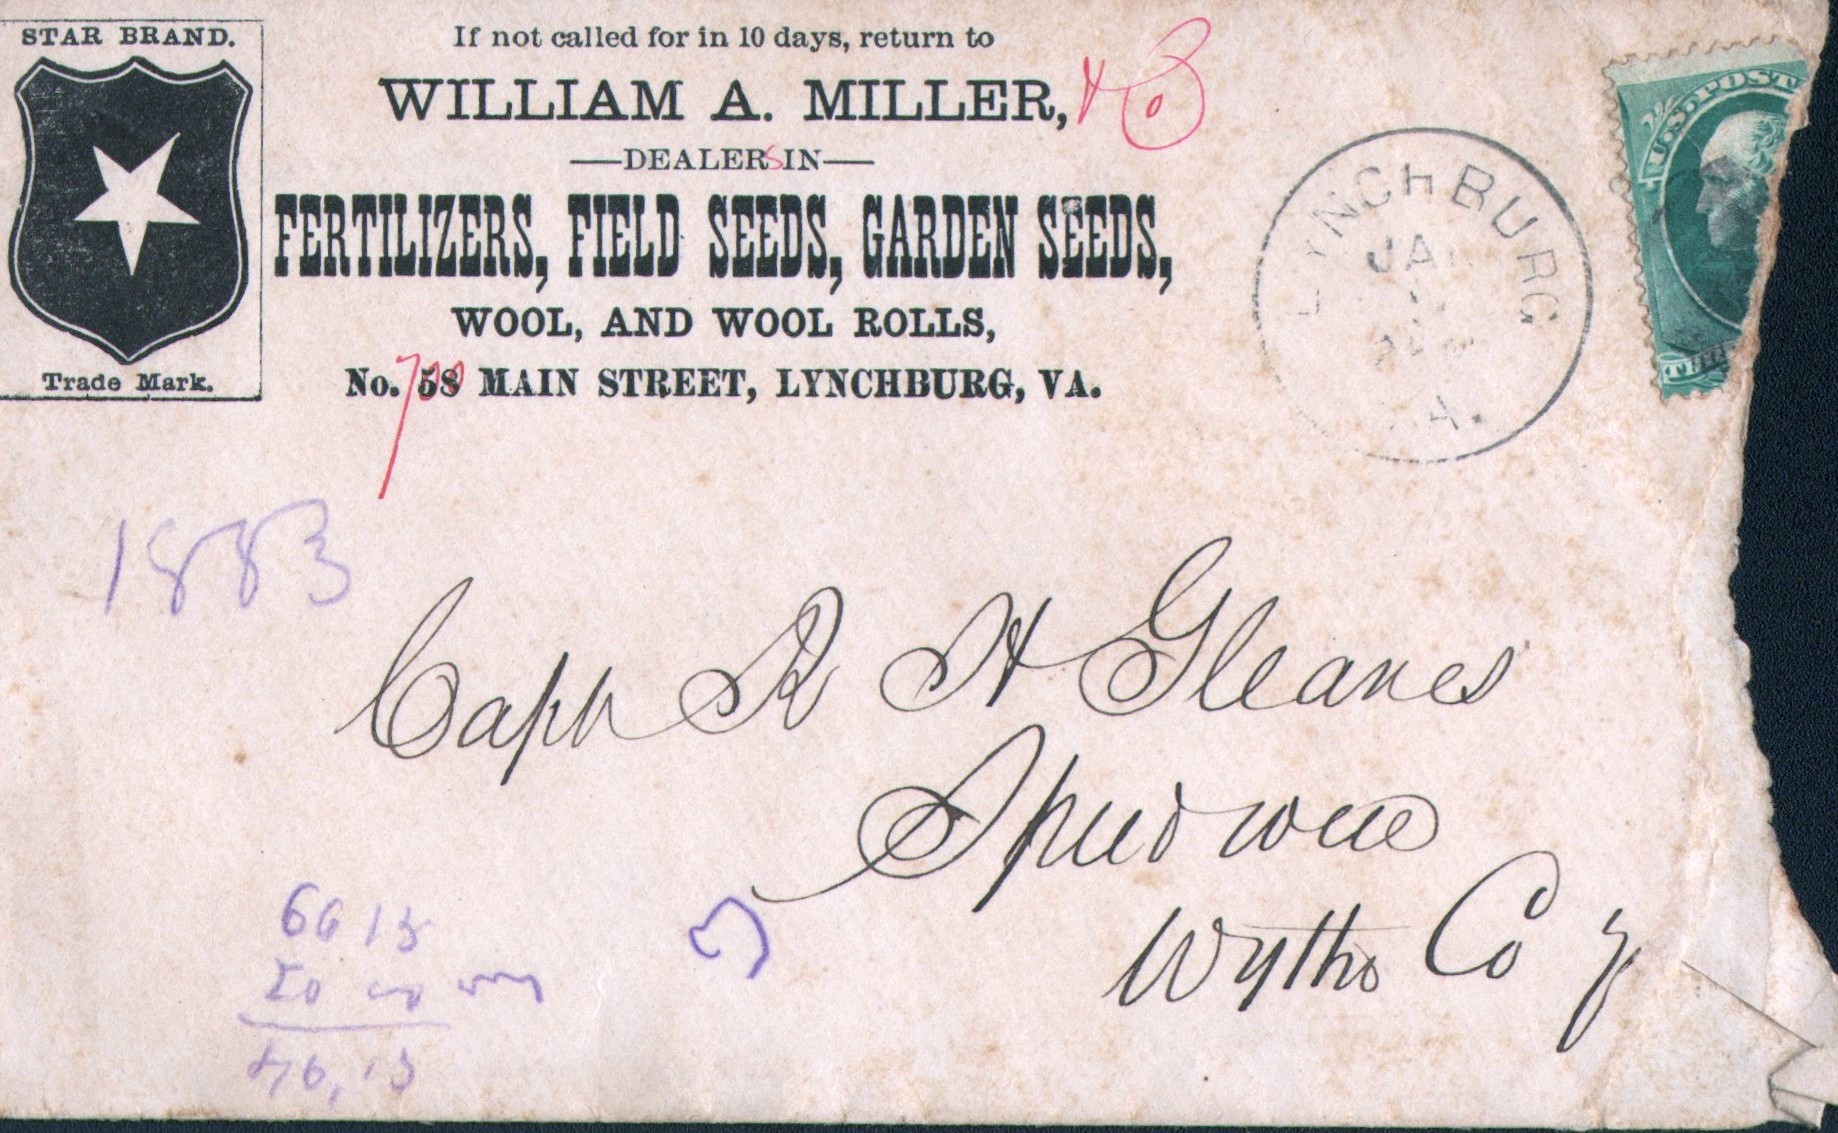 STAR BRAND.
Trade Mark.
If not called for in 10 days, return to
WILLIAM A. MILLER, & Co
DEALERS IN
FERTILIZERS, FIELD SEEDS, GARDEN SEEDS,
WOOL, AND WOOL ROLLS,
No. 58 700 MAIN STREET, LYNCHBURG, VA.
LYNCHBURG
JA
A.
U.S. POST
1883
Capt R H Gleaves
Speedwell
Wythe Co
66 15
20
46,15